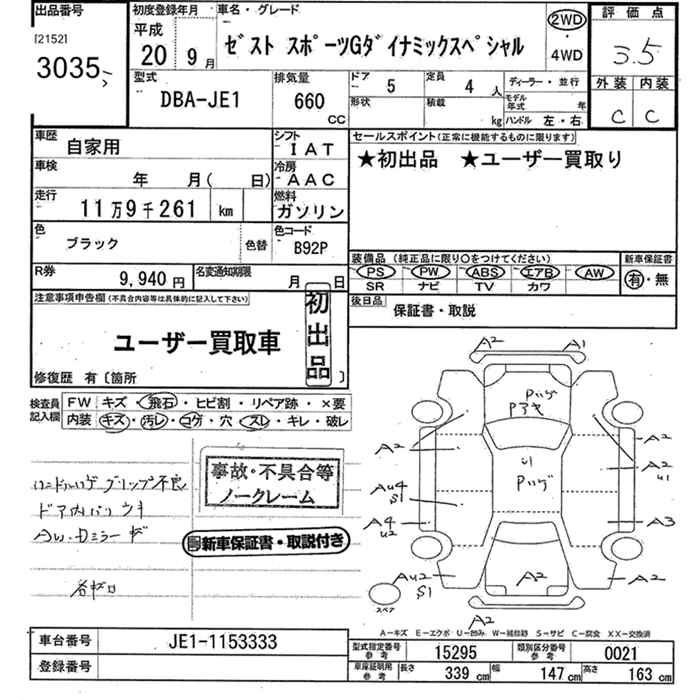 出品番号
[2152]
3035
初度登録年月
平成
20 9月
車名・グレード
ゼスト スポーツGダイナミックスペシャル
2WD
・
4WD
評価点
3.5
外装 内装
C C
型式
DBA-JE1
排気量
660
CC
ドア
5
定員
4人
形状
積載
kg
ディーラー・並行
モデル年式 年
ハンドル 左・右
車歴
自家用
シフト
IAT
車検
年 月( 日)
冷房
AAC
走行
11万9千261 km
燃料
ガソリン
色
ブラック
色替
色コード
B92P
R券
9,940円
名変通知期限
月 日
セールスポイント(正常に機能するものに限ります)
★初出品 ★ユーザー買取り
装備品 (純正品に限り○をつけてください)
PS PW ABS エアB AW
SR ナビ TV カワ
新車保証書
有・無
後日品
保証書・取説
注意事項申告欄(不具合内容等は具体的に記入して下さい)
ユーザー買取車
初出品
修復歴 有〔箇所 〕
検査員記入欄
FW キズ・飛石・ヒビ割・リペア跡・×要
内装 キズ・汚レ・コゲ・穴・スレ・キレ・破レ
事故・不具合等
ノークレーム
新車保証書・取説付き
ハンドルハゲ グリップ不良
ドア内バリ ウキ
AW・Dミラー キズ
A2 A1
Pハゲ
Pアセ
A2 A2
U1
U1
Pハゲ
AU4
S1
A4
U2
A3
AU2
S1
A2
A2
A2
スペア
A-キズ E-エクボ U-凹み W-補修跡 S-サビ C-腐食 XX-交換済
車台番号
JE1-1153333
登録番号
型式指定番号
参考
15295
類別区分番号
参考
0021
車庫証明用
参考
長さ 339cm 幅 147cm 高さ 163cm